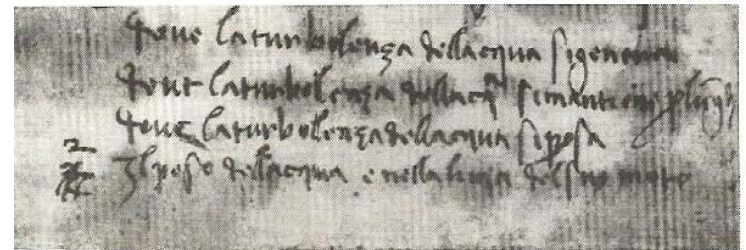 doue laturbolenza dellacqua sigenera
doue laturbolenza dellacq̃ simantiene plũgo
doue laturbolenzadellacqua siposa
2
Jl peso dellacqua e nella linia del suo moto